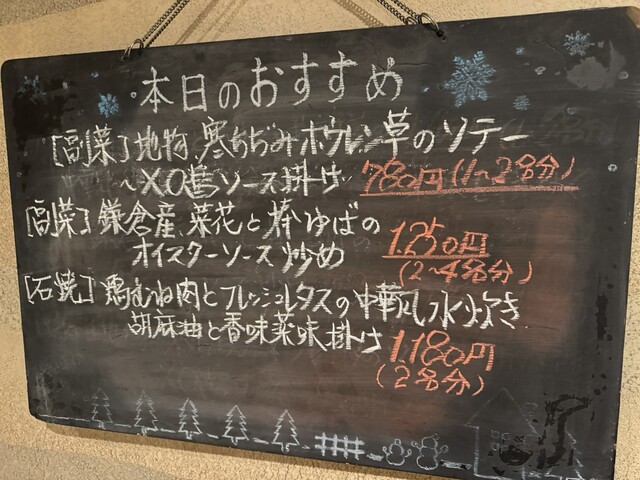 本日のおすすめ
[副菜] 地物、寒ちぢみホウレン草のソテー
~XO醤ソース掛け 780円(1~2名分)
[副菜] 鎌倉産、菜花と棒ゆばの
オイスターソース炒め 1.250円
(2~4名分)
[石焼] 鶏むね肉とフレッシュレタスの中華風水炊き
胡麻油と香味薬味掛け 1.180円
(2名分)